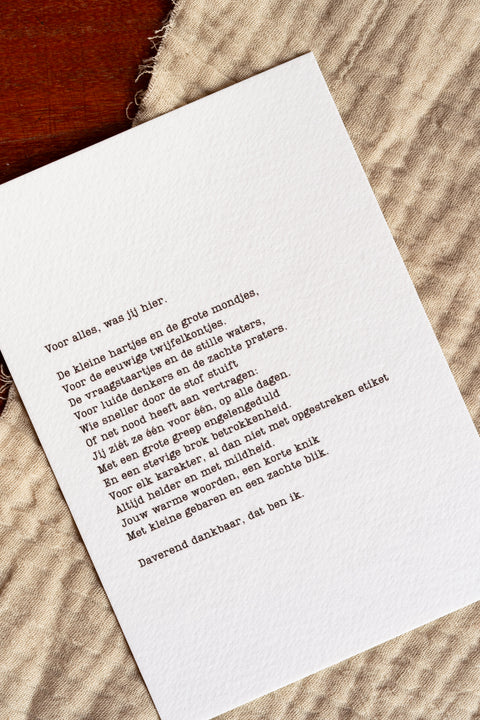 Voor alles, was jij hier.
De kleine hartjes en de grote mondjes,
Voor de eeuwige twijfelkontjes.
De vraagstaartjes en de stille waters,
Voor luide denkers en de zachte praters.
Wie sneller door de stof stuift
Of net nood heeft aan vertragen:
Jij ziét ze één voor één, op alle dagen.
Met een grote greep engelengeduld
En een stevige brok betrokkenheid.
Voor elk karakter, al dan niet met opgestreken etiket
Altijd helder en met mildheid.
Jouw warme woorden, een korte knik
Met kleine gebaren en een zachte blik.
Daverend dankbaar, dat ben ik.